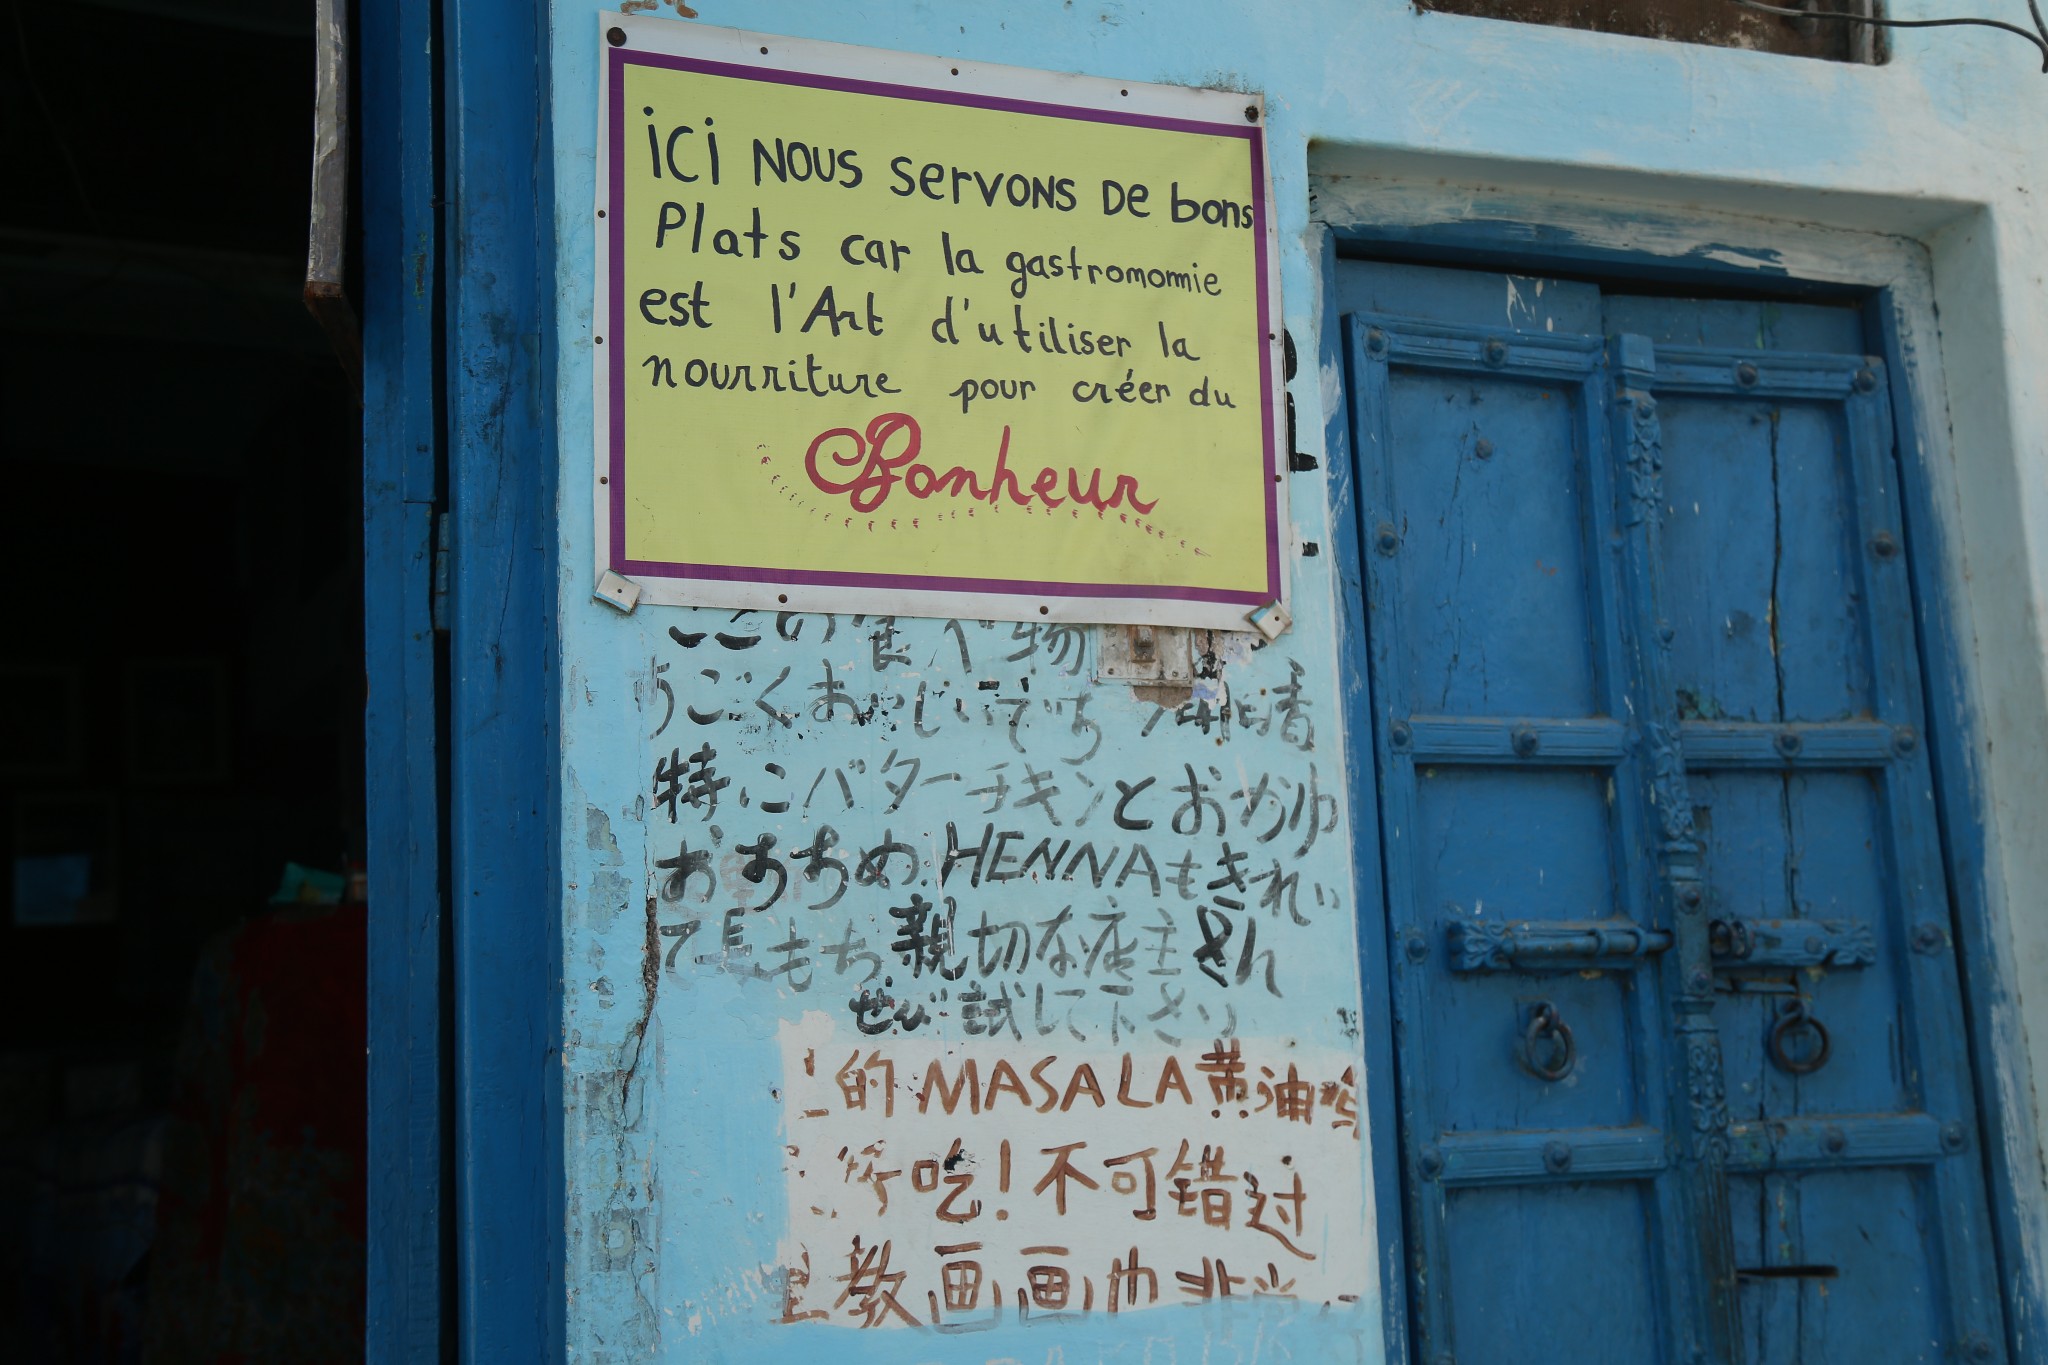 iCi NOUS servons De bons
Plats car la gastromomie
est l'Art d'utiliser la
nourriture pour créer du
Bonheur
ここの食べ物
うごくおいしいです
特にバターチキンと
おすすめ HENNAもきれい
て長もち 親切な店主さん
ぜひ試して下さい
的 MASALA 黄油鸡
吃!不可错过
里教画画巾非常